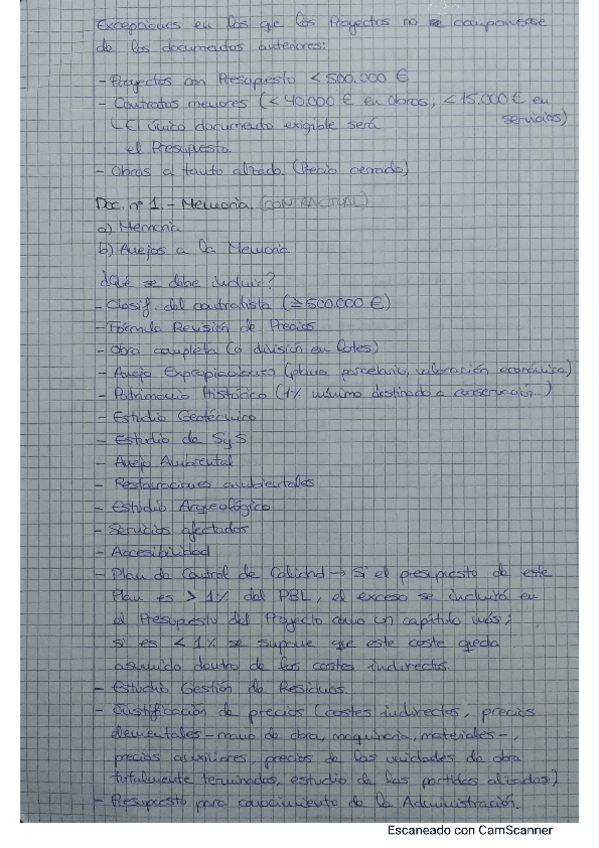 Excepciones en las qe los Proyectos no se componerse
de los documentos anteriores:
- Proyectos con Presupuesto < 500.000 €
- Contratos menores (< 40.000 € en obras; < 15.000 € en
servicios)
↳ El único documento exigible será
el Presupuesto
- Obras a tanto alzado (Precio cerrado)
Doc. nº 1.- Memoria. (CONTRACTUAL)
a) Memoria
b) Anejos a la Memoria
¿Qué se debe incluir?
- Clasif. del contratista (≥ 500.000 €)
- Fórmula Revisión de Precios
- Obra completa (o división en lotes)
- Anejo Expropiaciones (plano parcelario, valoración económica)
- Patrimonio Histórico (1% mínimo destinado a conservación...)
- Estudio Geotécnico
- Estudio de SyS
- Anejo Ambiental
- Restauraciones ambientales
- Estudio Arqeológico
- Servicios afectados
- Accesibilidad
- Plan de Control de Calidad → Si el presupuesto de este
Plan es > 1% del PBL, el exceso se incluirá en
el Presupuesto del Proyecto como un capítulo más;
si es < 1% se supone que este coste queda
asumido dentro de los costes indirectos.
- Estudio Gestión de Residuos
- Justificación de precios (costes indirectos, precios
elementales - mano de obra, maquinaria, materiales -,
precios auxiliares, precios de las unidades de obra
totalmente terminadas, estudio de las partidas alzadas)
- Presupuesto para conocimiento de la Administración.
Escaneado con CamScanner